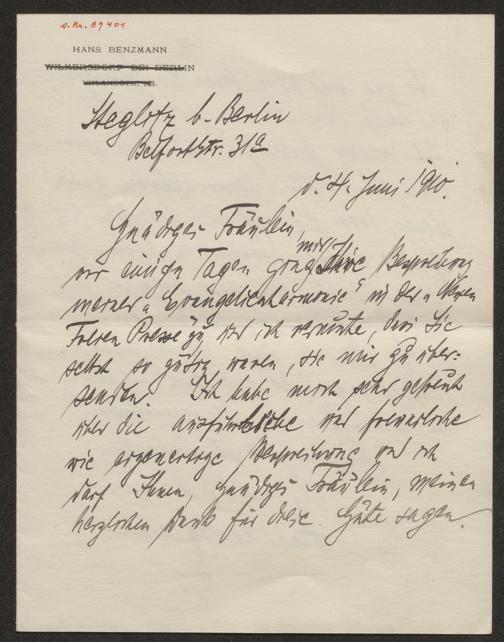 a. Nr. 89401
HANS BENZMANN
WILMERSDORF BEI BERLIN
Steglitz b. Berlin
Belfortstr. 31a
d. 4. Juni 1910.
Gnädiges Fräulein,
vor einigen Tagen ging mir Ihre Besprechung
meiner „Evangelienharmonie" in der „Neuen
Freien Presse" zu und ich vermute, dass Sie
selbst so gütig waren, sie mir zu über-
senden. Ich habe mich sehr gefreut
über die ausführliche und freundliche
wie eigenartige Besprechung und ich
darf Ihnen, gnädiges Fräulein, meinen
herzlichen Dank für diese Güte sagen.